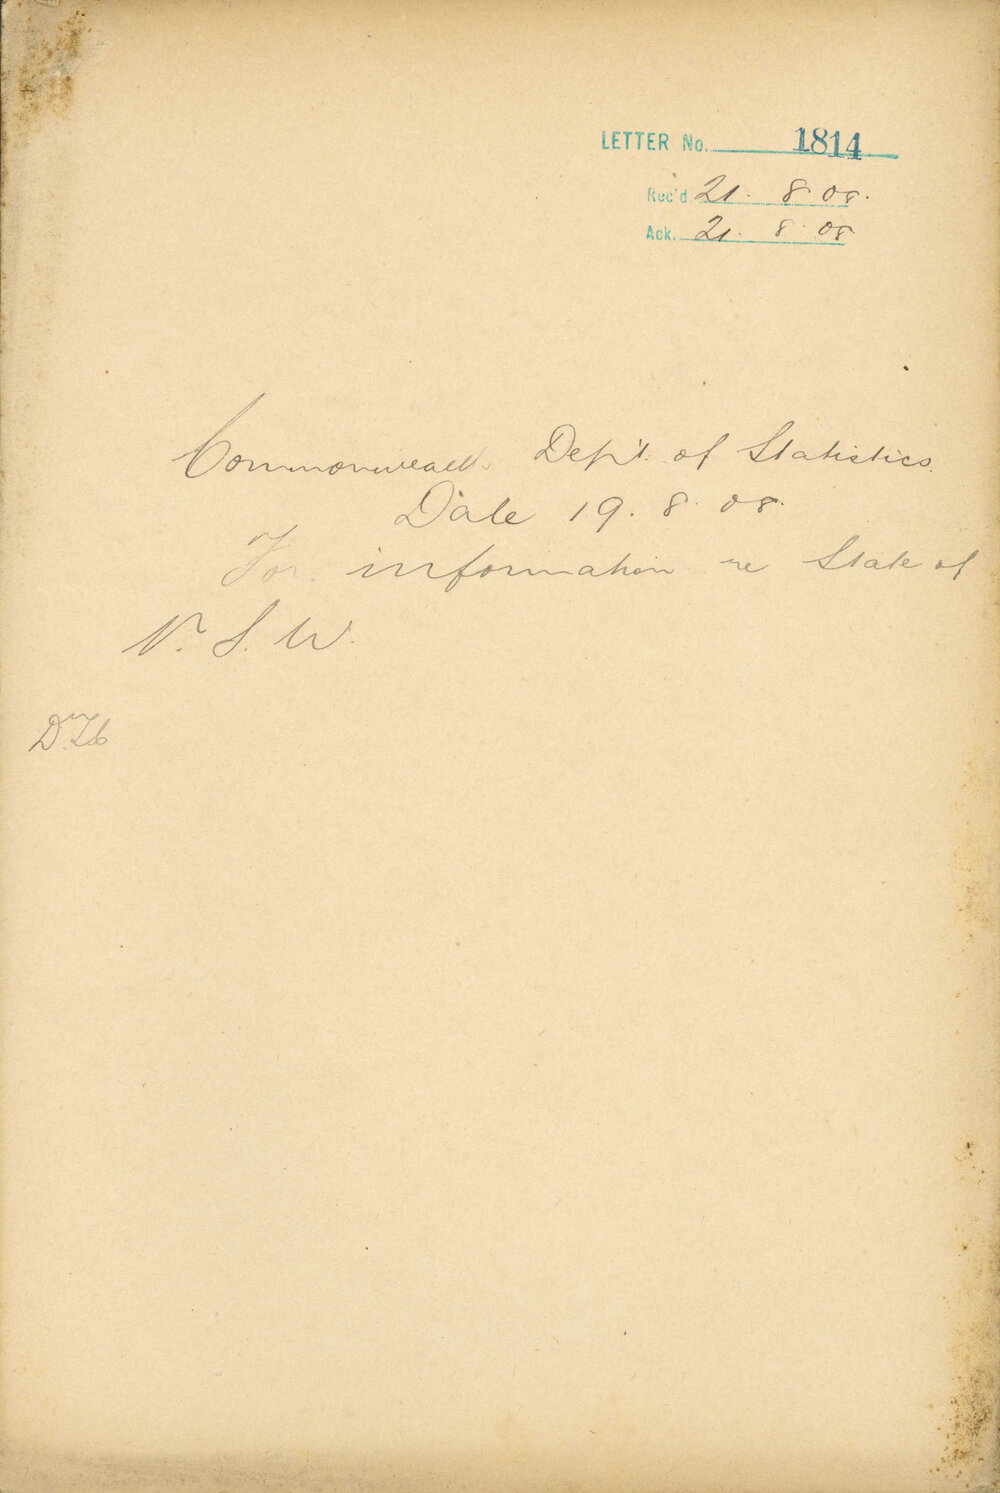 LETTER No. 1814
Rec'd 21. 8. 08.
Ack. 21. 8. 08
Commonwealth Dep't. of Statistics.
Date 19. 8. 08.
For information re State of
N. S. W.